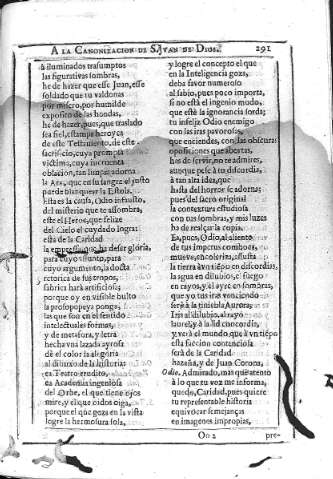 A LA CANONIZACION DE S. JVAN DE DIOS. 291
à iluminados trasumptos
las figurativas sombras,
he de hazer que esse Juan, esse
soldado que tu valdonas
por misero, por humilde
exposito de las hondas,
he de hazer, pues, que traslado
sea fiel, estampa heroyca
de este Testamento, de este
sacrificio, cuya prompta
victima, cuya incruenta
oblacion, tan limpia adorna
la Ara, que en su sangre el justo
parde blanquear la Estola.
Esta es la causa, Odio infausto,
del misterio que te assombra,
este el Heroe, que felize
del Cielo el cuydado logra:
esta de la Caridad
la empressa, que ha de ser gloria,
para cuyo assunto, para
cuyo argumento, la docta
retorica de sus tropos,
fabrica harà artificiosa;
porque oy en visible bulto
la prosopopeya ponga,
las que son en el sentido
intelectuales formas,
y de metafora, y letra
hecha vna lazada ayrosa
dè el color la alegoria
al dibuxo de la historia:
ea Teatro erudito,
ea Academia ingeniosa
del Orbe, el que tiene ojos
mire, y el que oidos oiga,
porque el que goza en la vista
logre la hermosura sola,
y logre el concepto el que
en la Inteligencia goza,
deba favor numeroso
al sabio, pues poco importa,
si no està el ingenio modo,
que estè la ignorancia sorda;
tu infelìz Odio enemigo
con las iras pavorosas,
que enciendes, con las obscuras
oposiciones que abortas,
has de servir, no te admires,
aunque pese à tu discordia,
à tan alta idea, que
hasta del horror se adorna;
pues del sacro original
la contextura estudiosa
con tus sombras, y mis luzes
ha de realçar la copia.
Ea, pues, Odio, al aliento
de tus impetus comboca,
mueve, encoleriza, assusta
la tierra à vn tiépo en discordias,
la agua en diluvios, el fuego
en rayos, y el ayre en sombras,
que yo tus iras venciendo
serà à la tiniebla Aurora,
Iris al diluvio, al rayo
laurel, y à la lid concordia,
y verà el mundo que à vn tiépo
esta faccion contenciosa
serà de la Caridad
hazaña, y de Juan Corona,
Odio. Admirado, mas que atento
à lo que tu voz me informa,
quedo, Caridad, pues quiere
tu representable historia
equivocar semejanças
en imagenes impropias,
Oo 2 pre-